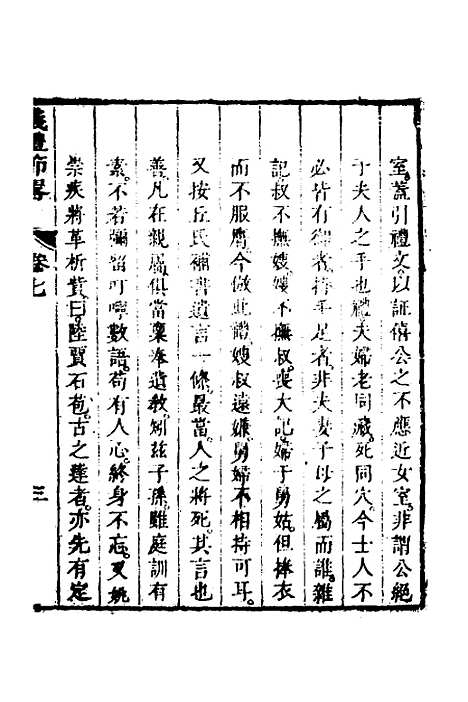 室蓋引禮文以証僖公之不應近女室非謂公絕
于夫人之手也禮夫婦老同藏死同穴今士人不
必皆有御者持手足者非夫妻子母之屬而誰雜
記叔不撫嫂嫂不撫叔喪大記婦于舅姑但捧衣
而不服膺今倣此體嫂叔遠嫌舅婦不相持可耳
又按丘氏補書遺言一條最當人之將死其言也
善凡在親屬俱當稟奉遺教矧茲子孫雖庭訓有
素不若彌留叮嚀數語苟有人心終身不忘又姚
崇疾將革析貲曰陸賈石苞古之達者亦先有定
儀禮節畧
卷七
三